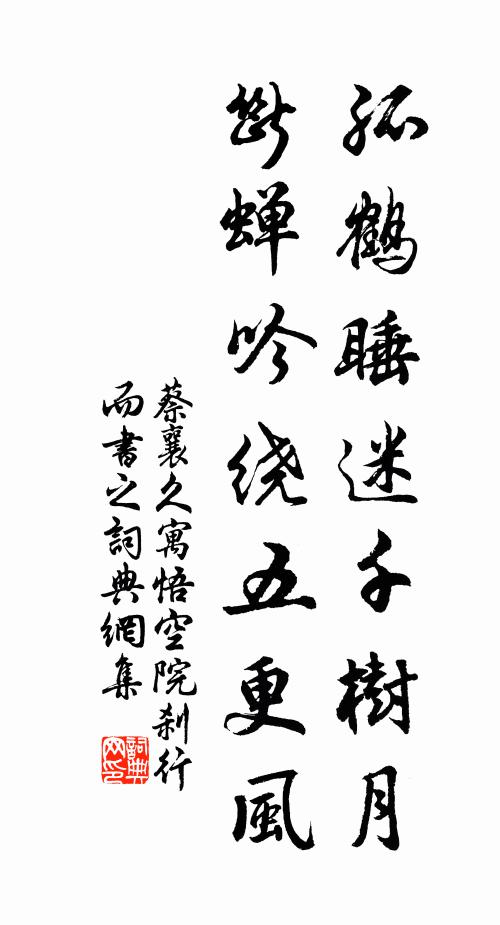 孤鶴睡迷千樹月
斷蟬吟绕五更風
蔡襄久寓悟空院刹行
而書之詞典網集
詞典
网印